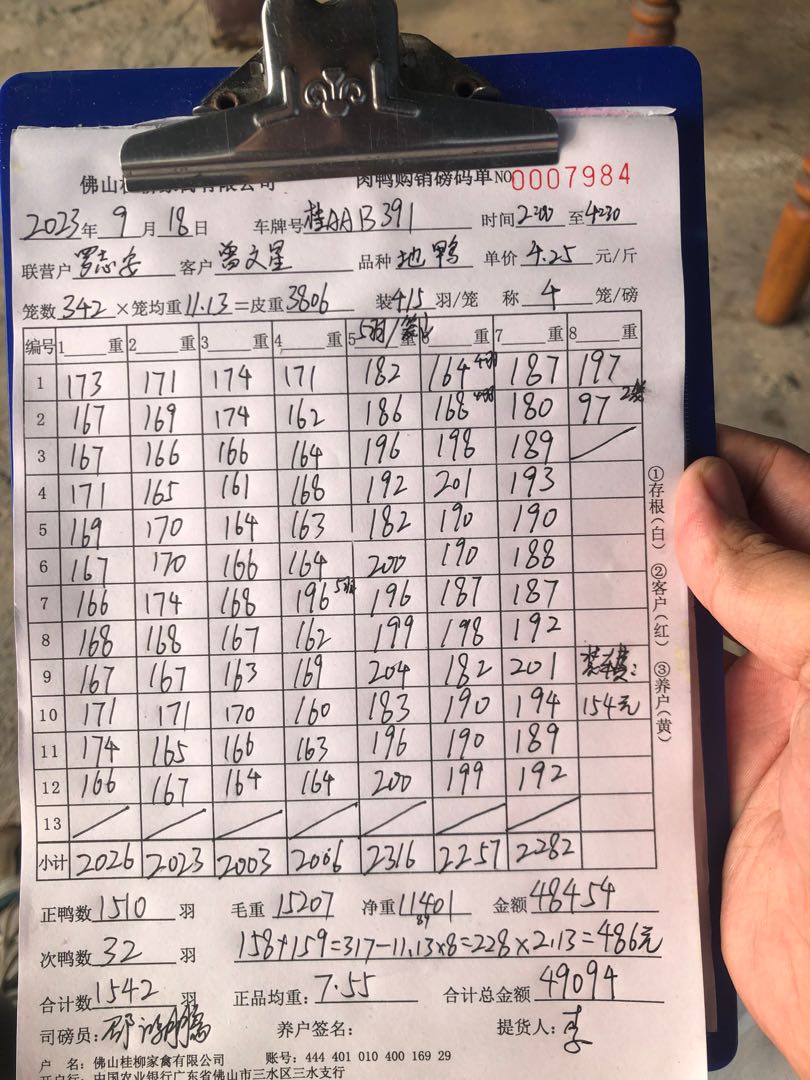 佛山桂柳家禽有限公司 肉鸭购销磅码单 NO 0007984
2023年 9月18日 车牌号桂AAB391 时间2200至4230
联营户 罗志安 客户 曾文星 品种 地鸭 单价 4.25 元/斤
笼数342×笼均重11.13=皮重3806 装4/5羽/笼 称 4 笼/磅
编号 1 重 2 重 3 重 4 重 5 重 6 重 7 重 8 重
5羽/笼
1 173 171 174 171 182 164 4羽 187 197
2 167 169 174 162 186 168 4羽 180 97 2笼
3 167 166 166 164 196 198 189
4 171 165 161 168 192 201 193
5 169 170 164 163 182 190 190
6 167 170 166 164 200 190 188
7 166 174 168 196 5羽 196 187 187
8 168 168 167 162 199 198 192
9 167 167 163 169 204 182 201
10 171 171 170 160 183 190 194 154元
11 174 165 166 163 196 190 189
12 166 167 164 164 200 199 192
13
小计 2026 2023 2003 2006 2316 2257 2282
正鸭数1510羽 毛重 15207 净重11401 金额48454
89
次鸭数 32 羽 158+159=317-11.13×8=228×2.13=486元
合计数1542羽 正品均重:7.55 合计总金额 49094
司磅员: 养户签名: 提货人:李
户 名:佛山桂柳家禽有限公司 账号:444 401 010 400 169 29
开户行:中国农业银行广东省佛山市三水区三水支行
①存根(白) ②客户(红) ③养户(黄)